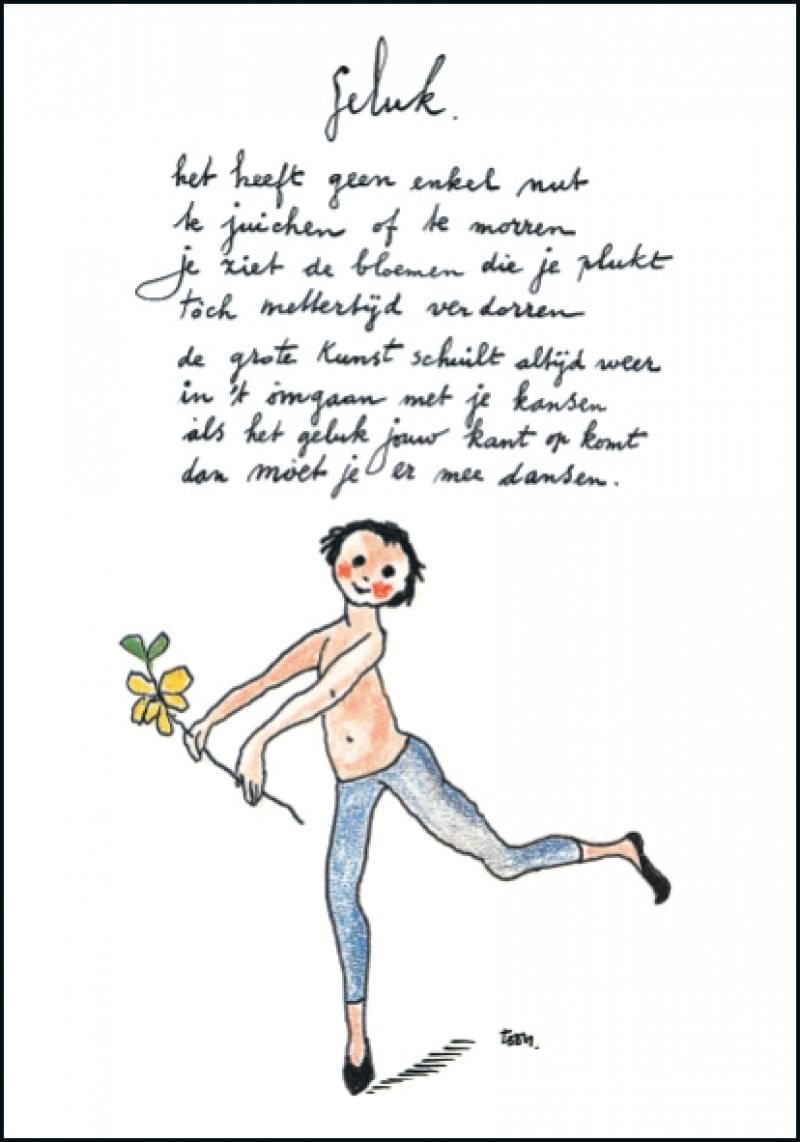 Geluk.
het heeft geen enkel nut
te juichen of te morren
je ziet de bloemen die je plukt
tòch mettertijd verdorren
de grote kunst schuilt altijd weer
in 't omgaan met je kansen
als het geluk jouw kant op komt
dan moet je er mee dansen.
toon.